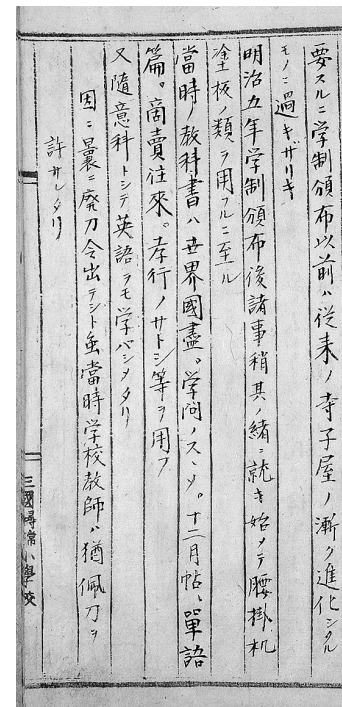 要スルニ学制頒布以前ハ従来ノ寺子屋ノ漸ク進化シタル
モノニ過ギザリキ
明治五年学制頒布後諸事稍其ノ緒ニ就キ始メテ腰掛机
塗板ノ類ヲ用フルニ至ル
當時ノ教科書ハ世界國盡。学問ノスヽメ。十二月帖、單語
篇。商賣往來。孝行ノサトシ等ヲ用フ
又隨意科トシテ英語ヲモ学バシメタリ
因ニ曩ニ廃刀令出テシト虽當時学校教師ハ猶佩刀ヲ
許サレタリ
三國尋常小學校